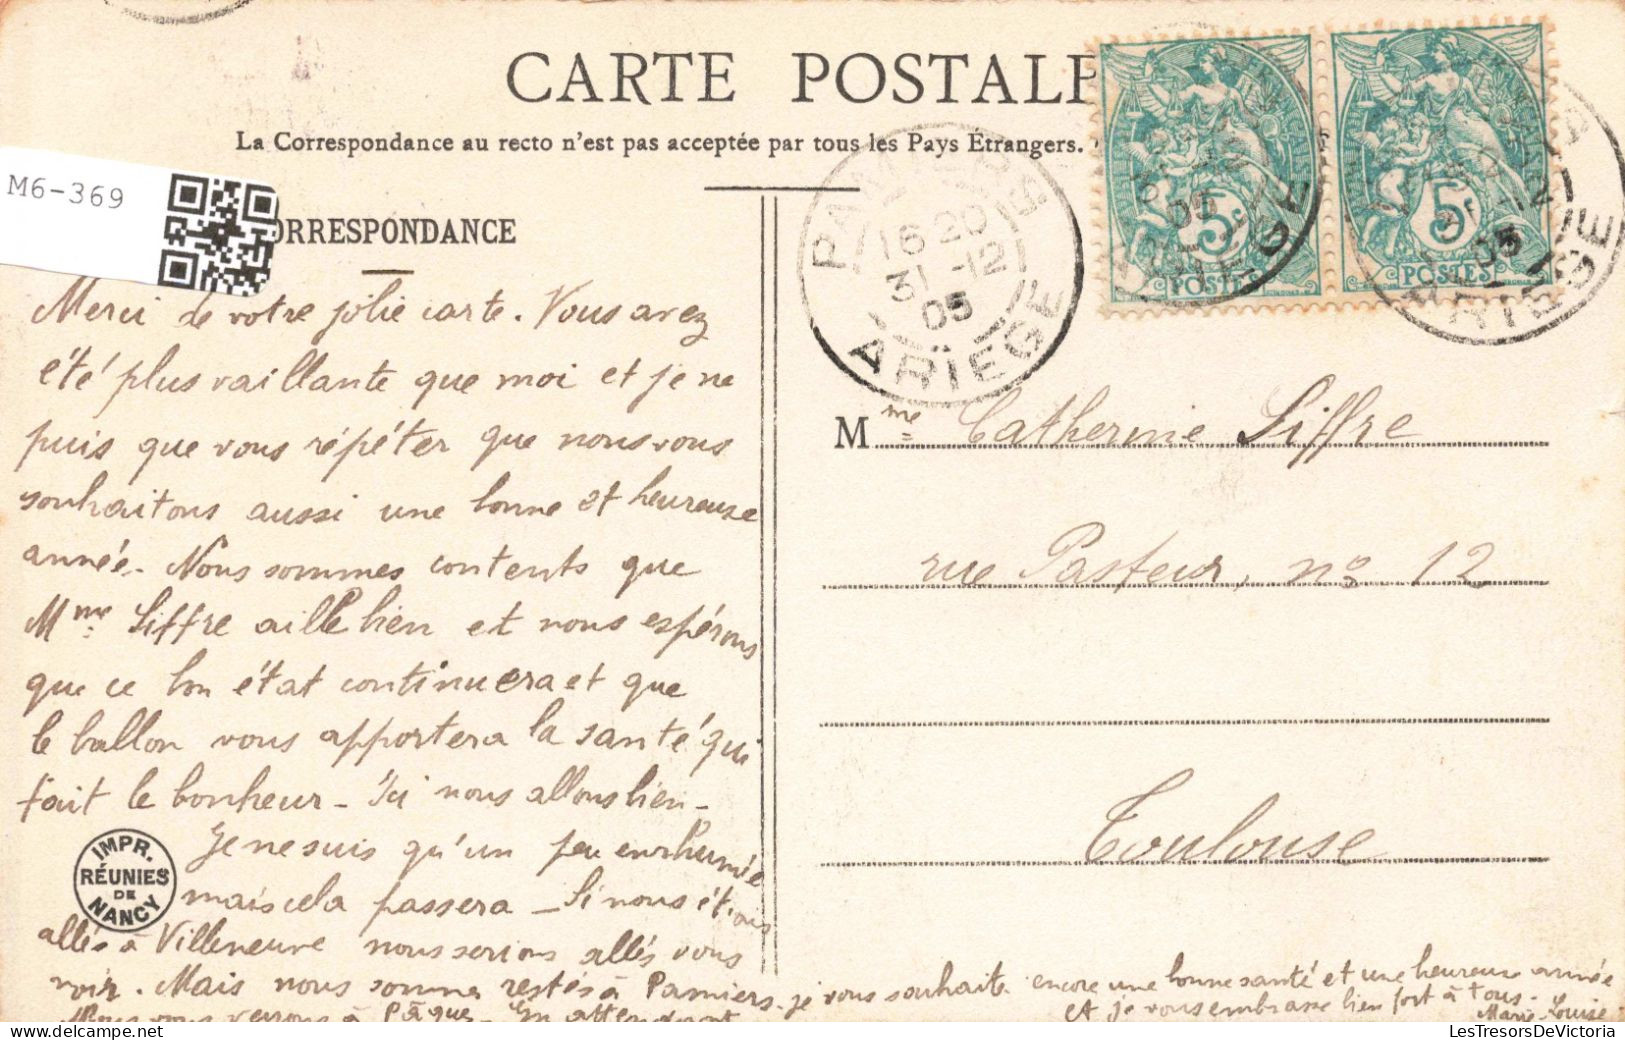 CARTE POSTALE
La Correspondance au recto n'est pas acceptée par tous les Pays Étrangers.
M6-369
CORRESPONDANCE
PAMIERS
16 20
31 -12
05
ARIÈGE
5c
POSTES
5c
POSTES
Merci de votre jolie carte. Vous avez
été plus vaillante que moi et je ne
puis que vous répéter que nous vous
souhaitons aussi une bonne et heureuse
année. Nous sommes contents que
Mme Siffre aille bien et nous espérons
que ce bon état continuera et que
le ballon vous apportera la santé qui
fait le bonheur - Ici nous allons bien -
Je ne suis qu'un peu enrhumée
mais cela passera - Si nous étions
allés à Villeneuve nous serions allés vous
voir. Mais nous sommes restés à Pamiers. je vous souhaite encore une bonne santé et une heureuse année
Nous vous verrons à Pâques. En attendant
et je vous embrasse bien fort à tous.
Marie-Louise
IMPR.
RÉUNIES
DE
NANCY
Mme Catherine Siffre
rue Pasteur, no 12
Toulouse
LesTresorsDeVictoria